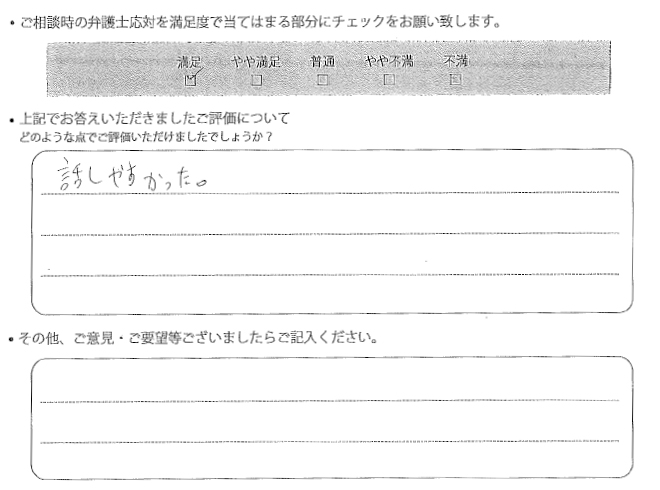 ・ご相談時の弁護士応対を満足度で当てはまる部分にチェックをお願い致します。
満足 やや満足 普通 やや不満 不満
☑ □ □ □ □
・上記でお答えいただきましたご評価について
どのような点でご評価いただけましたでしょうか？
話しやすかった。
・その他、ご意見・ご要望等ございましたらご記入ください。